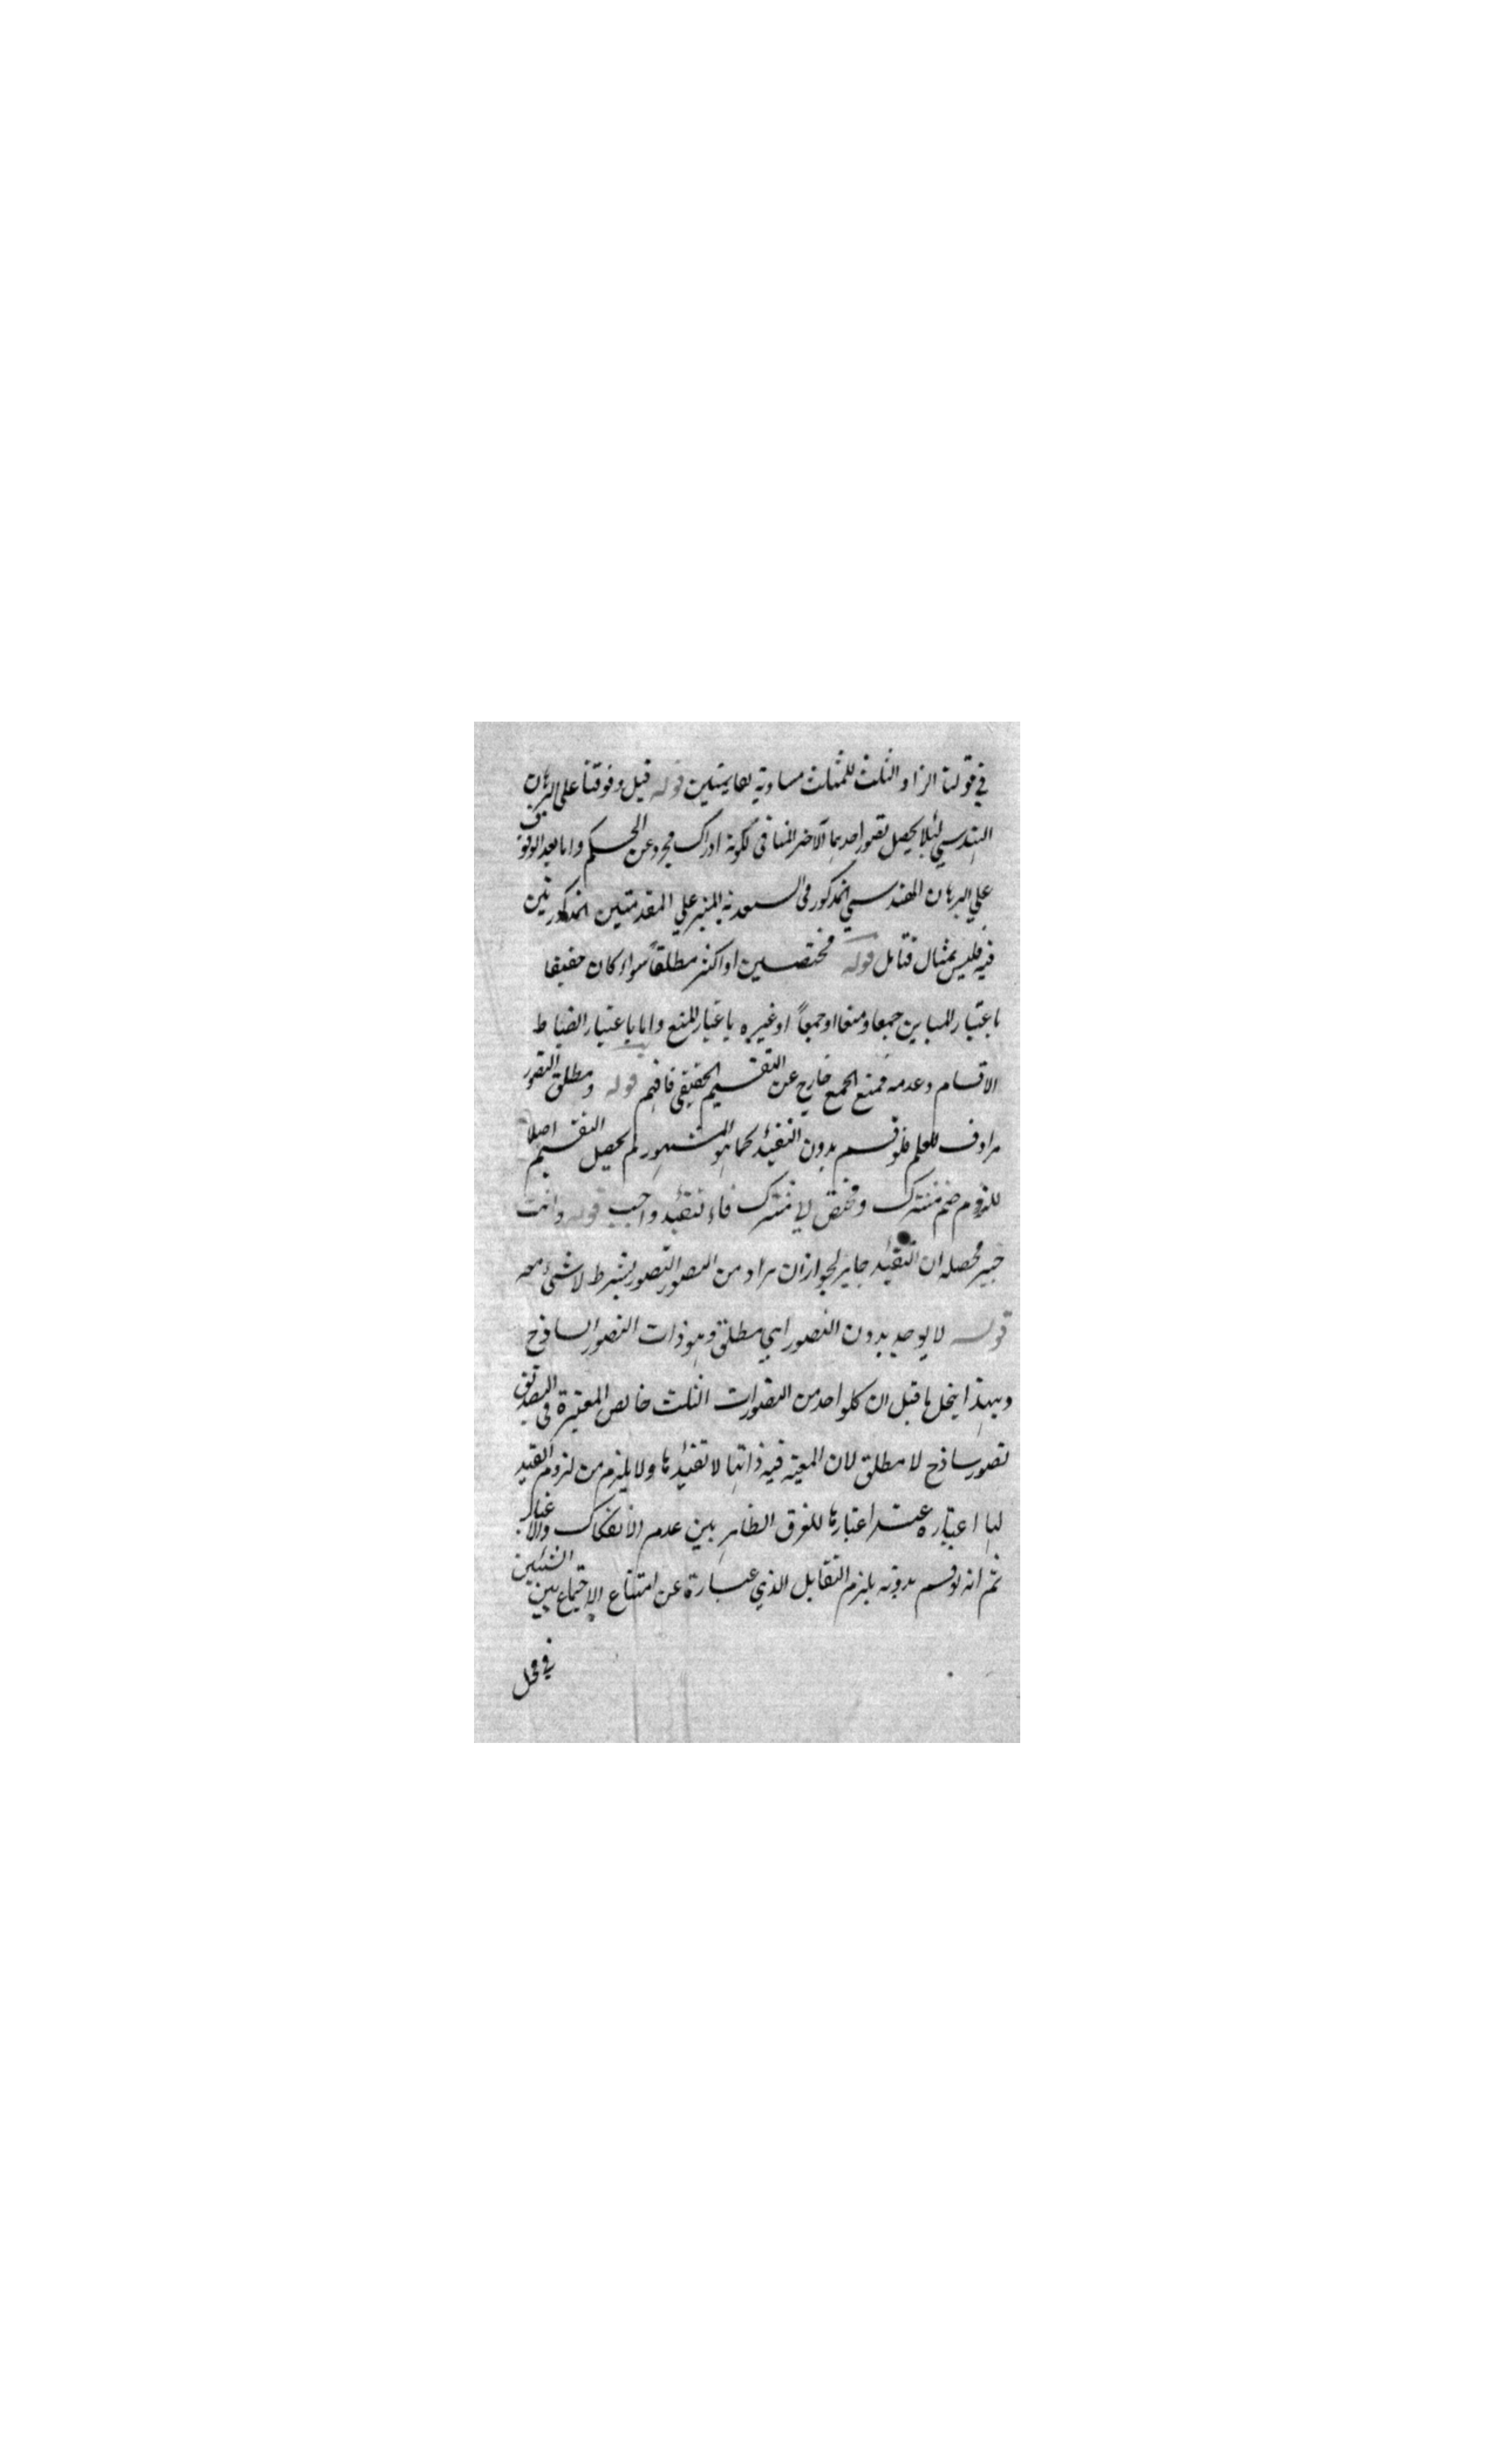 في قولنا الزاو الثلث للمثلث مساوية لقايمتين قوله قبل وقوفنا على البرهان
الهندسي لئلا يحصل تصور احديهما الآخر المنافى لكونه ادراك مجرد عن الحكم واما بعد الوقوف
على البرهان الهندسي المذكور في السعدية المنبه على المقدمتين المذكورتين
فيه فليس بمثال فتامل قوله مختصين او اكثر مطلقاً سواء كان حقيقا
باعتبار التباين جمعا ومنعا او جمعاً او غيره باعتبار المنع واما باعتبار انضباط
الاقسام وعدمه فمنع الجمع خارج عن التقسيم الحقيقي فافهم قوله ومطلق التصور
مرادف للعلم فلو قسم بدون التقييد كما هو المشهور لم يحصل التقسيم اصلا
للزوم ضم مشترك ومختص لا مشترك فاء لتقييد واجب قوله وانت
خبير محصله ان التقييد جايز لجواز ان مراد من التصور التصور بشرط لا شئ معه
قوله لا يوجد بدون التصور اي مطلق وهو ذات التصور الساذج
وبهذا ينحل ما قيل ان كلواحد من التصورات الثلث خالص المعتبرة في التصديق
تصور ساذج لا مطلق لان المعتبر فيه ذاتها لا تقييدها ولا يلزم من لزوم القيد
لها اعتباره عند اعتبارها للفرق الظاهر بين عدم الانفكاك والاعتبار
ثم انه لو قسم بدونه يلزم التقابل الذي عبارة عن امتناع الاجتماع بين الشيئين
في محل